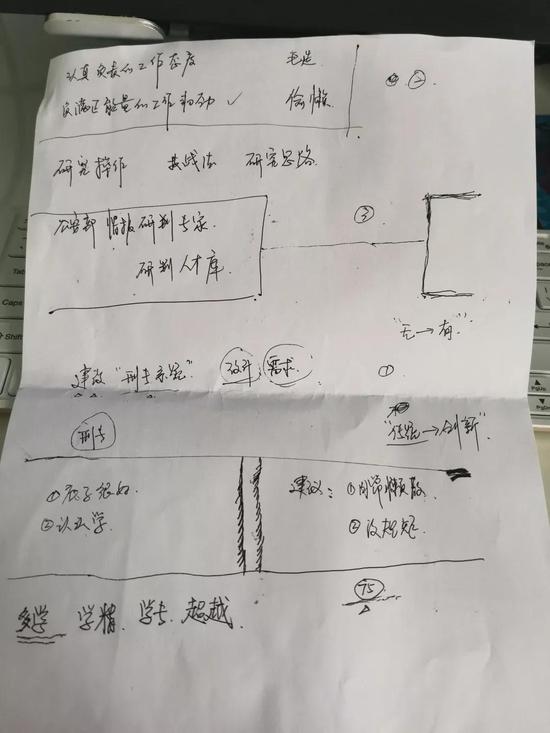 认真负责的工作态度
充满正能量的工作和动 ✓
偷懒
②
研究操作 实战法 研究思路
③
公安部 情报研判专家
研判人才库
"无→有"
建设"刑专系统" 设计 需求
①
"传统→创新"
刑专
①底子很好
②认真学
建议：①别带懒散
②没规矩
75
多学 学精 学专 超越